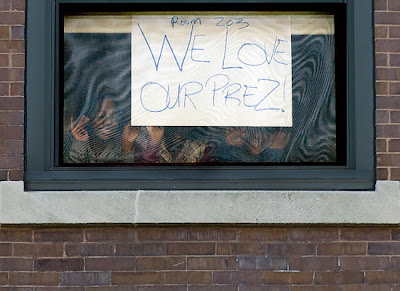 ROOM 203
WE LOVE
OUR PREZ!